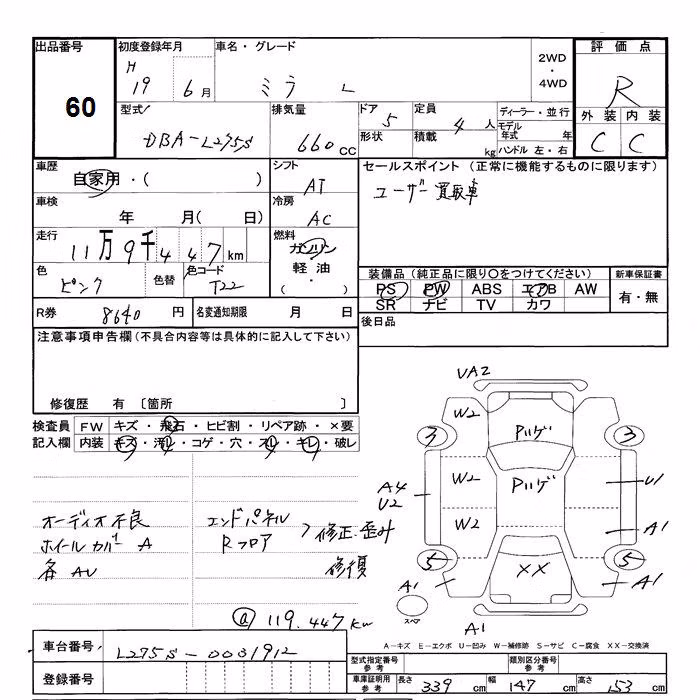 出品番号 初度登録年月 車名・グレード 評価点
60
H 19 6月 ミラ L 2WD・4WD R
型式 排気量 ドア 5 定員 4人 ディーラー・並行 外装 内装
DBA-L275S 660cc 形状 積載 kg モデル年式 年 C C
ハンドル 左・右
車歴 自家用・( ) シフト AT セールスポイント(正常に機能するものに限ります)
ユーザー買取車
車検 年 月( 日) 冷房 AC
走行 11万9千447km 燃料 ガソリン 軽油 ・( )
色 ピンク 色替 色コード T22
装備品(純正品に限り○をつけてください) 新車保証書
PS PW ABS エアB AW 有・無
SR ナビ TV カワ
R券 8640円 名変通知期限 月 日 後日品
注意事項申告欄(不具合内容等は具体的に記入して下さい)
修復歴 有 〔箇所 〕
検査員 FW キズ・飛石・ヒビ割・リペア跡・×要
記入欄 内装 キズ・汚レ・コゲ・穴・スレ・キレ・破レ
VA2
W2
3 3
W2
A4
U2
U1
W2
A1
5 5
XX
A1 A1
スペア
A1
オーディオ不良 エンドパネル 修正歪み
ホイールカバー A Rフロア 修復
各AU
@ 119.447km
A-キズ E-エクボ U-凹み W-補修跡 S-サビ C-腐食 XX-交換済
車台番号 L275S-0031912
型式指定番号 参考 類別区分番号 参考
登録番号
車庫証明用 参考 長さ 339cm 幅 147cm 高さ 153cm